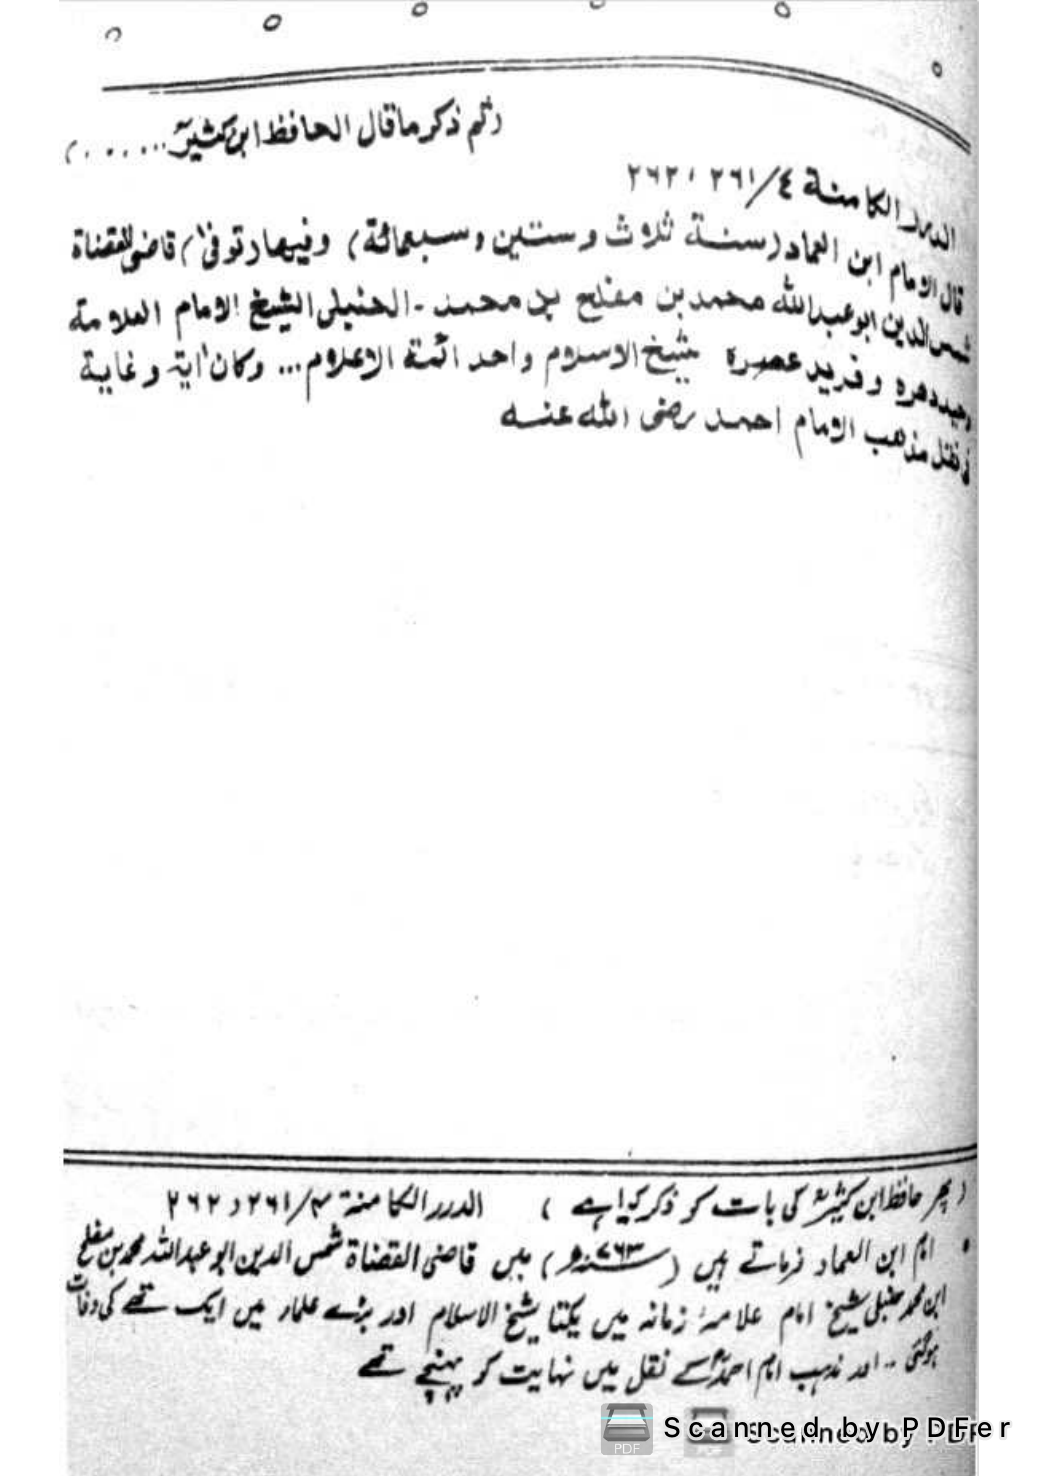 (ثم ذكر ما قال الحافظ ابن كثيرؒ ......)
الدرر الكامنة ٤/٢٦١، ٢٦٢
قال الامام ابن العماد (سنة ثلاث وستين وسبعمائة) وفيها (توفى) قاضى القضاة
شمس الدين ابو عبد الله محمد بن مفلح بن محمد - الحنبلى الشيخ الامام العلامة
وحيد دهره وفريد عصره شيخ الاسلام واحد ائمة الاعلام... وكان آية وغاية
فى نقل مذهب الامام احمد رضى الله عنه
(پھر حافظ ابن کثیرؒ کی بات کو ذکر کیا ہے ) الدرر الکامنة ۴/۲۶۱ ، ۲۶۲
• امام ابن العماد فرماتے ہیں (۷۶۳ھ) میں قاضی القضاة شمس الدین ابو عبداللہ محمد بن مفلح
ابن محمد حنبلی شیخ امام علامۂ زمانہ میں یکتا شیخ الاسلام اور بڑے علماء میں ایک تھے کی وفات
ہوگئی .. اور مذہب امام احمدؒ کے نقل میں نہایت کو پہنچے تھے
Scanned by PDFer